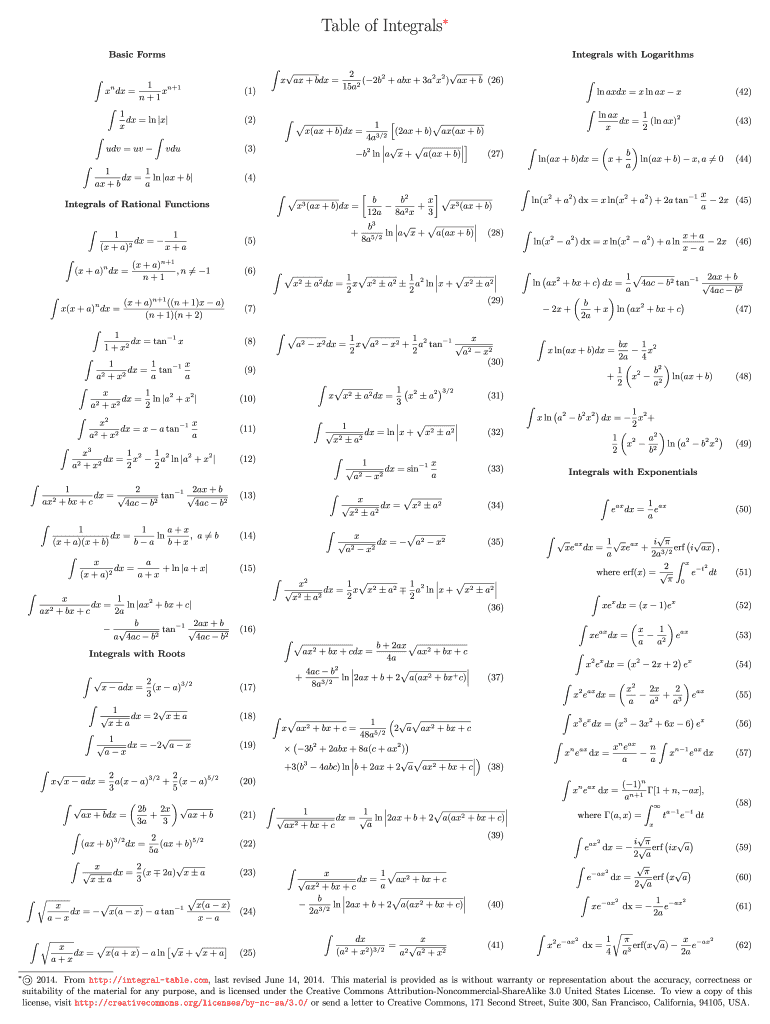 Table of Integrals*
Basic Forms
∫ xⁿdx = 1/(n+1) xⁿ⁺¹ (1)
∫ 1/x dx = ln |x| (2)
∫ udv = uv − ∫ vdu (3)
∫ 1/(ax + b) dx = 1/a ln |ax + b| (4)
Integrals of Rational Functions
∫ 1/(x + a)² dx = −1/(x + a) (5)
∫ (x + a)ⁿdx = (x + a)ⁿ⁺¹/(n + 1), n ≠ −1 (6)
∫ x(x + a)ⁿdx = (x + a)ⁿ⁺¹((n + 1)x − a)/((n + 1)(n + 2)) (7)
∫ 1/(1 + x²) dx = tan⁻¹ x (8)
∫ 1/(a² + x²) dx = 1/a tan⁻¹ x/a (9)
∫ x/(a² + x²) dx = 1/2 ln |a² + x²| (10)
∫ x²/(a² + x²) dx = x − a tan⁻¹ x/a (11)
∫ x³/(a² + x²) dx = 1/2 x² − 1/2 a² ln |a² + x²| (12)
∫ 1/(ax² + bx + c) dx = 2/√(4ac − b²) tan⁻¹ (2ax + b)/√(4ac − b²) (13)
∫ 1/((x + a)(x + b)) dx = 1/(b − a) ln (a + x)/(b + x), a ≠ b (14)
∫ x/(x + a)² dx = a/(a + x) + ln |a + x| (15)
∫ x/(ax² + bx + c) dx = 1/2a ln |ax² + bx + c|
− b/(a√(4ac − b²)) tan⁻¹ (2ax + b)/√(4ac − b²) (16)
Integrals with Roots
∫ √(x − a)dx = 2/3 (x − a)^(3/2) (17)
∫ 1/√(x ± a) dx = 2√(x ± a) (18)
∫ 1/√(a − x) dx = −2√(a − x) (19)
∫ x√(x − a)dx = 2/3 a(x − a)^(3/2) + 2/5 (x − a)^(5/2) (20)
∫ √(ax + b)dx = (2b/3a + 2x/3) √(ax + b) (21)
∫ (ax + b)^(3/2)dx = 2/5a (ax + b)^(5/2) (22)
∫ x/√(x ± a) dx = 2/3 (x ∓ 2a)√(x ± a) (23)
∫ √(x/(a − x)) dx = −√(x(a − x)) − a tan⁻¹ √(x(a − x))/(x − a) (24)
∫ √(x/(a + x)) dx = √(x(a + x)) − a ln [√x + √(x + a)] (25)
∫ x√(ax + b)dx = 2/15a² (−2b² + abx + 3a²x²)√(ax + b) (26)
∫ √(x(ax + b))dx = 1/4a^(3/2) [(2ax + b)√(ax(ax + b))
−b² ln |a√x + √(a(ax + b))|] (27)
∫ √(x³(ax + b))dx = [b/12a − b²/8a²x + x/3] √(x³(ax + b))
+ b³/8a^(5/2) ln |a√x + √(a(ax + b))| (28)
∫ √(x² ± a²)dx = 1/2 x√(x² ± a²) ± 1/2 a² ln |x + √(x² ± a²)|
(29)
∫ √(a² − x²)dx = 1/2 x√(a² − x²) + 1/2 a² tan⁻¹ x/√(a² − x²)
(30)
∫ x√(x² ± a²)dx = 1/3 (x² ± a²)^(3/2) (31)
∫ 1/√(x² ± a²) dx = ln |x + √(x² ± a²)| (32)
∫ 1/√(a² − x²) dx = sin⁻¹ x/a (33)
∫ x/√(x² ± a²) dx = √(x² ± a²) (34)
∫ x/√(a² − x²) dx = −√(a² − x²) (35)
∫ x²/√(x² ± a²) dx = 1/2 x√(x² ± a²) ∓ 1/2 a² ln |x + √(x² ± a²)|
(36)
∫ √(ax² + bx + c)dx = (b + 2ax)/4a √(ax² + bx + c)
+ (4ac − b²)/8a^(3/2) ln |2ax + b + 2√(a(ax² + bx⁺c))| (37)
∫ x√(ax² + bx + c) = 1/48a^(5/2) (2√a√(ax² + bx + c)
× (−3b² + 2abx + 8a(c + ax²))
+3(b³ − 4abc) ln |b + 2ax + 2√a√(ax² + bx + c)|) (38)
∫ 1/√(ax² + bx + c) dx = 1/√a ln |2ax + b + 2√(a(ax² + bx + c))|
(39)
∫ x/√(ax² + bx + c) dx = 1/a √(ax² + bx + c)
− b/2a^(3/2) ln |2ax + b + 2√(a(ax² + bx + c))| (40)
∫ dx/(a² + x²)^(3/2) = x/(a²√(a² + x²)) (41)
Integrals with Logarithms
∫ ln axdx = x ln ax − x (42)
∫ ln ax/x dx = 1/2 (ln ax)² (43)
∫ ln(ax + b)dx = (x + b/a) ln(ax + b) − x, a ≠ 0 (44)
∫ ln(x² + a²) dx = x ln(x² + a²) + 2a tan⁻¹ x/a − 2x (45)
∫ ln(x² − a²) dx = x ln(x² − a²) + a ln (x + a)/(x − a) − 2x (46)
∫ ln (ax² + bx + c) dx = 1/a √(4ac − b²) tan⁻¹ (2ax + b)/√(4ac − b²)
− 2x + (b/2a + x) ln (ax² + bx + c) (47)
∫ x ln(ax + b)dx = bx/2a − 1/4 x²
+ 1/2 (x² − b²/a²) ln(ax + b) (48)
∫ x ln (a² − b²x²) dx = −1/2 x²+
1/2 (x² − a²/b²) ln (a² − b²x²) (49)
Integrals with Exponentials
∫ e^(ax)dx = 1/a e^(ax) (50)
∫ √x e^(ax)dx = 1/a √x e^(ax) + i√π/2a^(3/2) erf (i√(ax)),
where erf(x) = 2/√π ∫₀ˣ e^(−t²)dt (51)
∫ xeˣdx = (x − 1)eˣ (52)
∫ xe^(ax)dx = (x/a − 1/a²) e^(ax) (53)
∫ x²eˣdx = (x² − 2x + 2) eˣ (54)
∫ x²e^(ax)dx = (x²/a − 2x/a² + 2/a³) e^(ax) (55)
∫ x³eˣdx = (x³ − 3x² + 6x − 6) eˣ (56)
∫ xⁿe^(ax) dx = xⁿe^(ax)/a − n/a ∫ xⁿ⁻¹e^(ax) dx (57)
∫ xⁿe^(ax) dx = (−1)ⁿ/aⁿ⁺¹ Γ[1 + n, −ax],
where Γ(a, x) = ∫ₓ^∞ t^(a−1)e^(−t) dt
(58)
∫ e^(ax²) dx = −i√π/2√a erf (ix√a) (59)
∫ e^(−ax²) dx = √π/2√a erf (x√a) (60)
∫ xe^(−ax²) dx = −1/2a e^(−ax²) (61)
∫ x²e^(−ax²) dx = 1/4 √(π/a³) erf(x√a) − x/2a e^(−ax²) (62)
*© 2014. From http://integral-table.com, last revised June 14, 2014. This material is provided as is without warranty or representation about the accuracy, correctness or
suitability of the material for any purpose, and is licensed under the Creative Commons Attribution-Noncommercial-ShareAlike 3.0 United States License. To view a copy of this
license, visit http://creativecommons.org/licenses/by-nc-sa/3.0/ or send a letter to Creative Commons, 171 Second Street, Suite 300, San Francisco, California, 94105, USA.